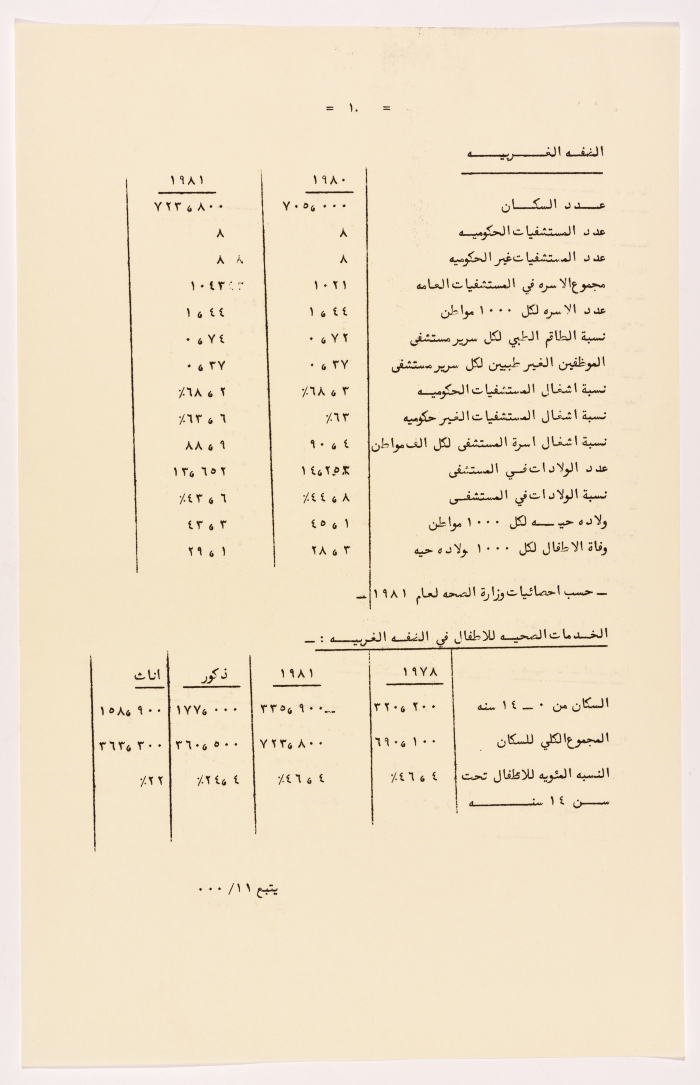 = ١٠ =
الضفه الغربيه
١٩٨٠ ١٩٨١
عدد السكان ٧٠٥٫٠٠٠ ٧٢٣٫٨٠٠
عدد المستشفيات الحكوميه ٨ ٨
عدد المستشفيات غير الحكوميه ٨ ٨ ٨
مجموع الاسره في المستشفيات العامه ١٠٢١ ١٠٤٣
عدد الاسره لكل ١٠٠٠ مواطن ١٫٤٤ ١٫٤٤
نسبة الطاقم الطبي لكل سرير مستشفى ٠٫٧٢ ٠٫٧٤
الموظفين الغير طبيين لكل سرير مستشفى ٠٫٣٧ ٠٫٣٧
نسبة اشغال المستشفيات الحكوميه ٦٨٫٣٪ ٦٨٫٢٪
نسبة اشغال المستشفيات الغير حكوميه ٦٣٪ ٦٣٫٦٪
نسبة اشغال اسرة المستشفى لكل الف مواطن ٩٠٫٤ ٨٨٫٩
عدد الولادات في المستشفى ١٤٫٢٥٣ ١٣٫٦٥٢
نسبة الولادات في المستشفى ٤٤٫٨٪ ٤٣٫٦٪
ولاده حيه لكل ١٠٠٠ مواطن ٤٥٫١ ٤٣٫٣
وفاة الاطفال لكل ١٠٠٠ ولاده حيه ٢٨٫٣ ٢٩٫١
ـ حسب احصائيات وزارة الصحه لعام ١٩٨١ ـ
الخدمات الصحيه للاطفال في الضفه الغربيه : ـ
١٩٧٨ ١٩٨١ ذكور اناث
السكان من ٠ ـ ١٤ سنه ٣٢٠٫٢٠٠ ٣٣٥٫٩٠٠ ١٧٧٫٠٠٠ ١٥٨٫٩٠٠
المجموع الكلي للسكان ٦٩٠٫١٠٠ ٧٢٣٫٨٠٠ ٣٦٠٫٥٠٠ ٣٦٣٫٣٠٠
النسبه المئويه للاطفال تحت ٤٦٫٤٪ ٤٦٫٤٪ ٢٤٫٤٪ ٢٢٪
سن ١٤ سنه
يتبع ١١/ ٠٠٠